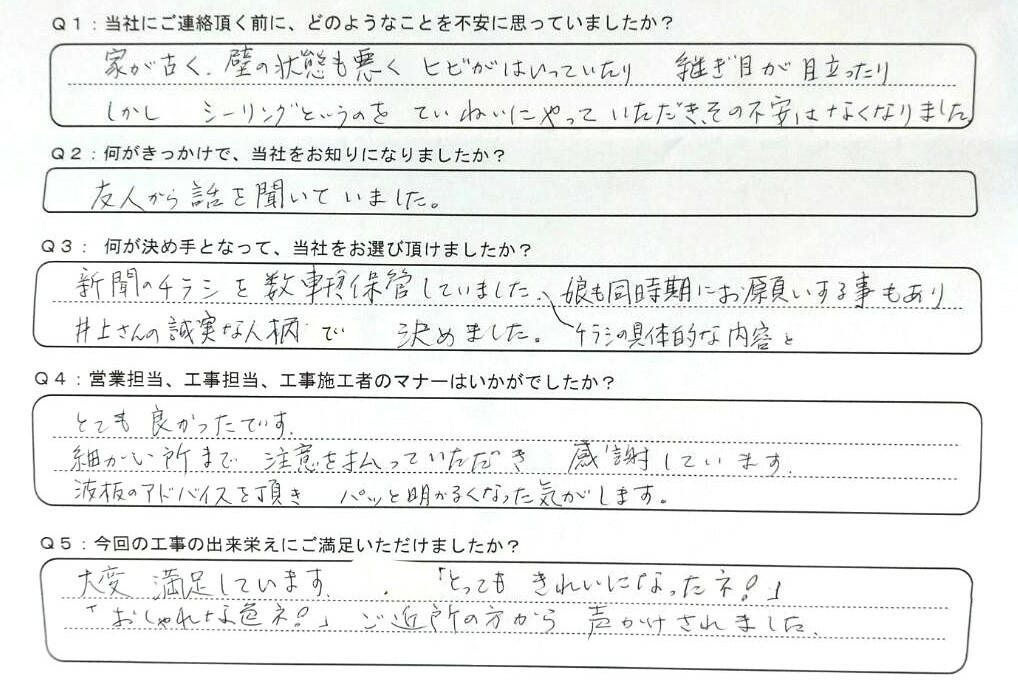 Q1：当社にご連絡頂く前に、どのようなことを不安に思っていましたか？
家が古く、壁の状態も悪く ヒビがはいっていたり 継ぎ目が目立ったり
しかし シーリングというのを ていねいにやっていただき、その不安はなくなりました
Q2：何がきっかけで、当社をお知りになりましたか？
友人から話を聞いていました。
Q3： 何が決め手となって、当社をお選び頂けましたか？
新聞のチラシを数種保管していました、娘も同時期にお願いする事もあり
井上さんの誠実な人柄で 決めました。 チラシの具体的な内容と
Q4：営業担当、工事担当、工事施工者のマナーはいかがでしたか？
とても良かったです。
細かい所まで 注意を払っていただき 感謝しています。
波板のアドバイスを頂き パッと明かるくなった気がします。
Q5：今回の工事の出来栄えにご満足いただけましたか？
大変 満足しています。 「とっても きれいになったネ！」
「おしゃれな色ネ！」 ご近所の方から 声かけされました。